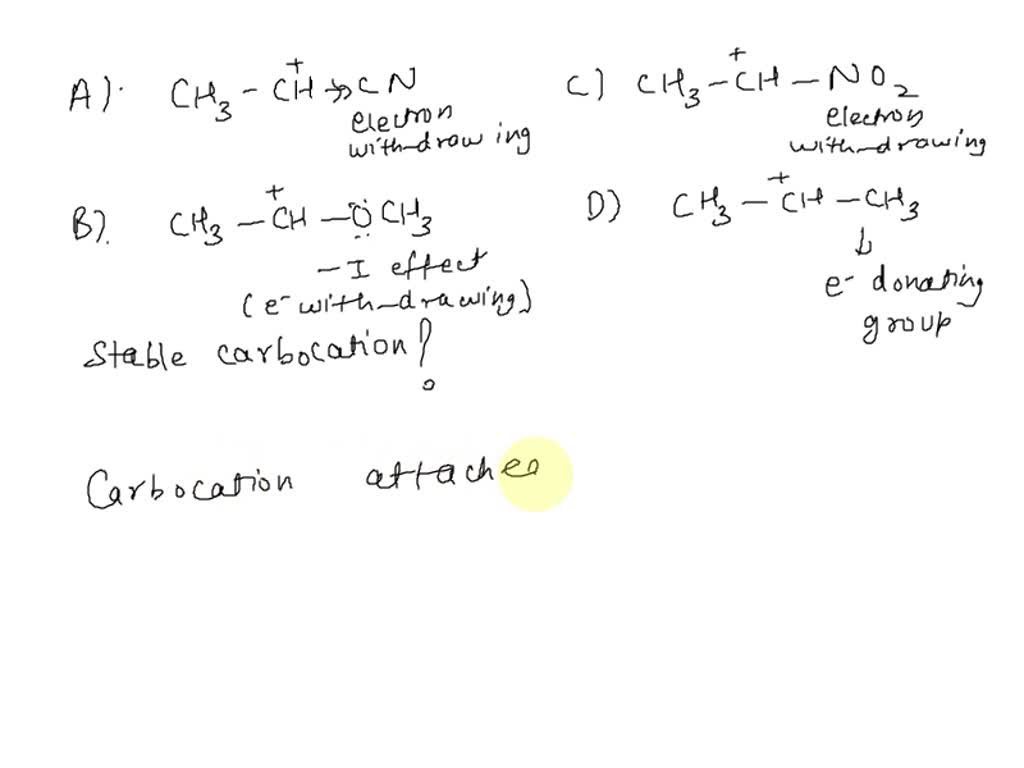 A). CH3 - CH+ →» CN
electron
with-drawing
C) CH3 - CH+ - NO2
electron
with-drawing
B). CH3 - CH+ - ÖCH3
- I effect
(e- with-drawing)
D) CH3 - CH+ - CH3
↓
e- donating
group
Stable carbocation?
Carbocation attached